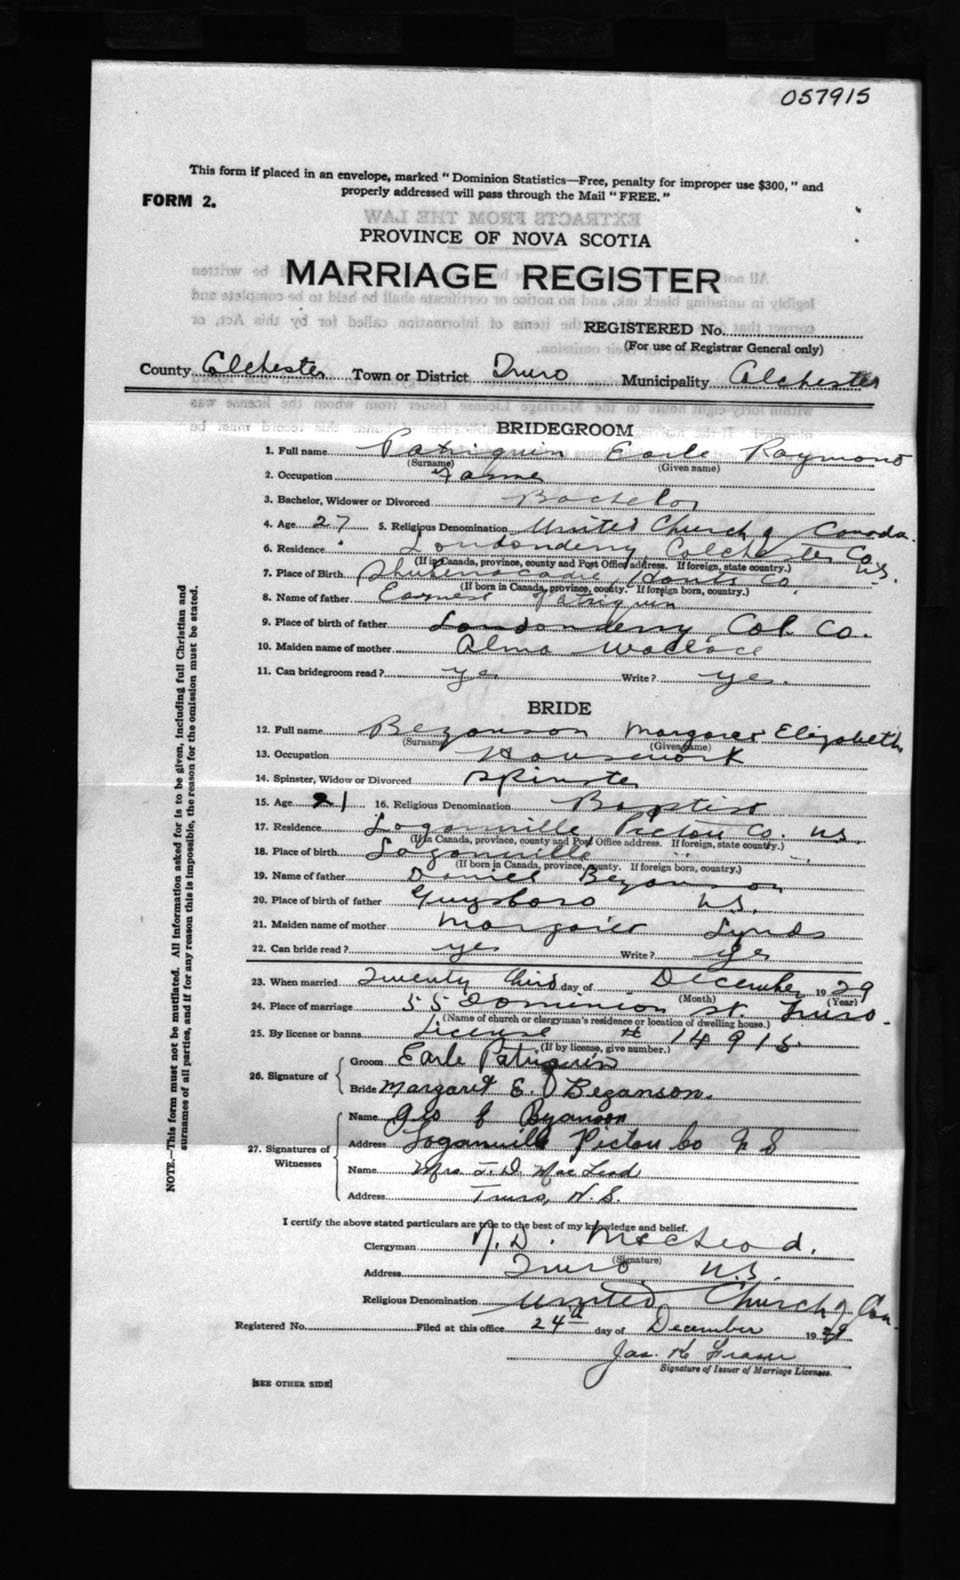 057915
This form if placed in an envelope, marked "Dominion Statistics—Free, penalty for improper use $300," and
properly addressed will pass through the Mail "FREE."
FORM 2.
EXTRACTS FROM THE LAW
PROVINCE OF NOVA SCOTIA
MARRIAGE REGISTER
REGISTERED No.
(For use of Registrar General only)
County Colchester Town or District Truro Municipality Colchester
BRIDEGROOM
1. Full name Patriquin Earle Raymond
(Surname) (Given name)
2. Occupation Farmer
3. Bachelor, Widower or Divorced Bachelor
4. Age 27 5. Religious Denomination United Church of Canada.
6. Residence Londonderry, Colchester Co. N.S.
(If in Canada, province, county and Post Office address. If foreign, state country.)
7. Place of Birth Shubenacadie, Hants Co.
(If born in Canada, province, county. If foreign born, country.)
8. Name of father Earnest Patriquin
9. Place of birth of father Londonderry, Col. Co.
10. Maiden name of mother Alma Wallace
11. Can bridegroom read? yes Write? yes.
BRIDE
12. Full name Bezanson Margaret Elizabeth
(Surname) (Given name)
13. Occupation Housework
14. Spinster, Widow or Divorced Spinster
15. Age 21 16. Religious Denomination Baptist
17. Residence Loganville Pictou Co. N.S.
(If in Canada, province, county and Post Office address. If foreign, state country.)
18. Place of birth Loganville
(If born in Canada, province, county. If foreign born, country.)
19. Name of father Daniel Bezanson
20. Place of birth of father Guysboro N.S.
21. Maiden name of mother Margaret Lynds
22. Can bride read? yes Write? yes
23. When married Twenty third day of December 1929
(Month) (Year)
24. Place of marriage 55 Dominion St. Truro.
(Name of church or clergyman's residence or location of dwelling house.)
25. By license or banns License # 14915
(If by license, give number.)
26. Signature of Groom Earle Patriquin
Bride Margaret E. Bezanson.
27. Signatures of Witnesses
Name Geo Bezanson
Address Loganville Pictou Co N S
Name Mrs. MacLeod
Address Truro, N.S.
I certify the above stated particulars are true to the best of my knowledge and belief.
Clergyman N. D. MacLeod.
(Signature)
Address Truro N.S.
Religious Denomination United Church of Can.
Registered No. Filed at this office 24th day of December 1929
Jas. K Fraser
Signature of Issuer of Marriage Licenses.
[SEE OTHER SIDE]
NOTE.—This form must not be mutilated. All information asked for is to be given, including full Christian and
surnames of all parties, and if for any reason this is impossible, the reason for the omission must be stated.